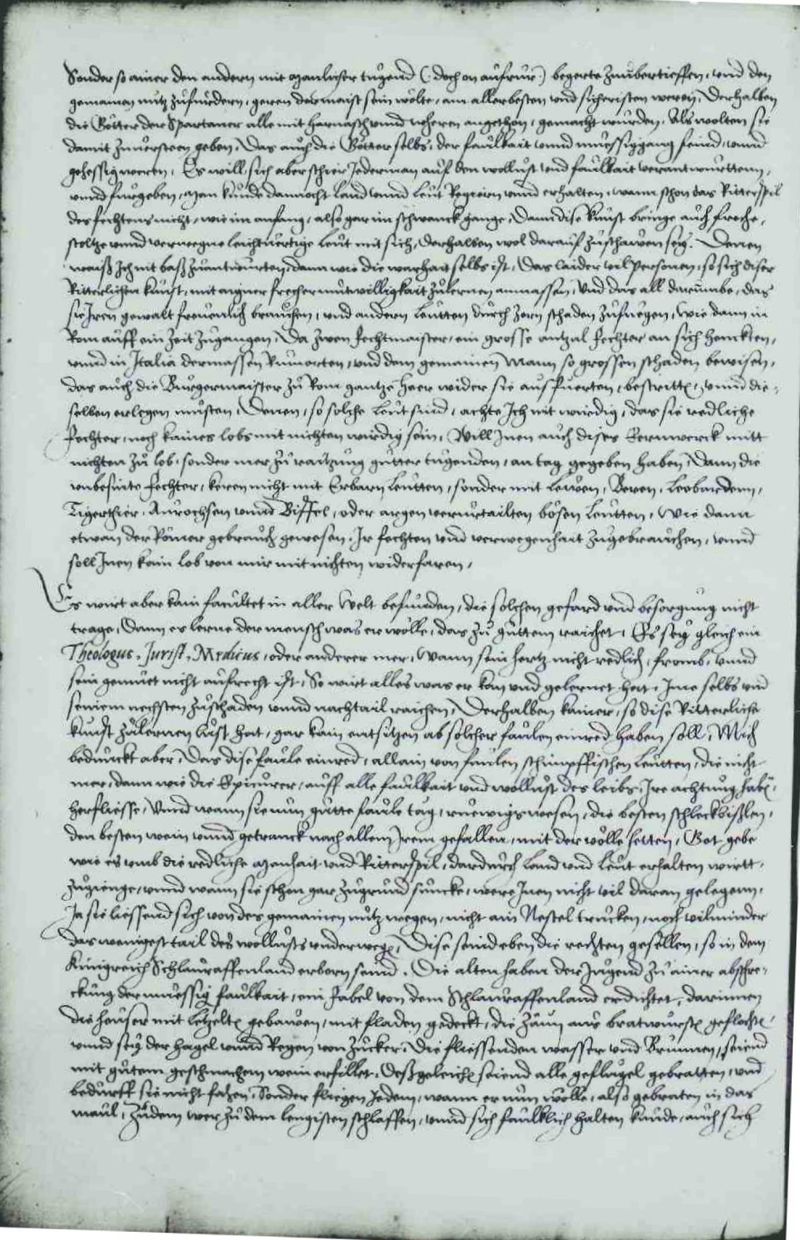 Sonder so ainer den andern mit manlicher tugend (doch on aufrur) begerte zuubertreffen, und den
gemainen nutz zufurdern, geren der maist sein wolte, am allerbesten und sicheristen weren, Derhalben
die Götter der Spartaner alle mit harnasch unnd wheren angethon, gemacht wurden, Als wolten sie
damit zuuersteen geben, Das auch die Götter selbs, der faulkait unnd muessiggang feind, unnd
gehessig weren, Es will sich aber schier jederman auf den wollust und faulkait verantwurttenn,
unnd furgeben, man kunde dannocht land unnd leut Regiern unnd erhalten, wann schon das Ritterspil
des fechtens nicht, wie im anfang, also gar im schwanck gange, Dann dise kunst bringe auch freche,
stoltze unnd verwegne leichtuertige leut mit sich, derhalben wol darauf zuschawen sey, Denen
waiß Ich nit baß zuantwurten, dann wie die warhait selbs ist, Das laider vil personen, so sich diser
Ritterlichen kunst, mit aigner frecher mutwilligkait zulernen anmassen, Und das all darumbe, das
sie Iren gewalt freuenlich brauchen, und andern leutten durch Zorn schaden zufuegen, Wie dann in
Rom auff ein Zeit zugangen, Da zwen fechtmaister, ein grosse antzal fechter an sich henckten,
unnd in Italia dermassen Rumorten, und dem gemainen Mann so grossen schaden bewisen,
das auch die Burgermaister zu Rom gantze Heer wider sie ausfuerten, bestritten, unnd die-
selben erlegen musten, Denen, so solche leut sind, achte Ich nit wirdig, das sie redliche
fechter, noch kaines lobs mit nichten wirdig sein, Will Inen auch dises Fernwerck mitt
nichten zu lob, sonder mer zu raitzung gutter tugenden, an tag gegeben haben, Dann die
unbesinte fechter, keren nicht mit Erbarn leutten, sonder mit lewen, Beren, leobarden,
Tigerthier, Aurochsen unnd Biffel, oder argen verurtailten bösen leutten, Wie dann
etwan der Römer gebrauch gewesen, Ir fechten und verwegenhait zugebrauchen, unnd
soll Inen kain lob von mir mit nichten widerfaren,
Es wirt aber kain facultet in aller Welt befunden, die solchen gefard und besorgung nicht
trage, Dann es lerne der mensch was er wölle, das zu guttem raichet, Es seig gleich ein
Theologus, Jurist, Medicus, oder anderer mer, Wann sein hertz nicht redlich, fromb, unnd
sein gemuet nicht aufrecht ist, So wirt alles was er kan und gelernet hat, Ime selbs und
seinem nechsten zuschaden unnd nachtail raichen, Derhalben kainer, so dise Ritterliche
kunst zulernen lust hat, gar kain entsitzen ab solcher faulen einred haben soll, Mich
beduncket aber, Das dise faule einred, allain von faulen schimpffischen leutten, die nicht
mer, dann wie die Epicurer, auff alle faulkait und wollust des leibs, Ire achtung haben,
herfliesse, Unnd wann sie nun gutte faule tag, ruewigs wesen, die besten schleckbißlen,
den besten wein unnd getranck nach allem Irem gefallen, mit der wölle hetten, Got gebe
wie es umb die redliche manhait und Ritterspil, dardurch land und leut erhalten wirtt,
zugienge, unnd wann sie schon gar zugrund suncke, were Inen nicht vil daran gelegenn,
Ja sie liessend sich von des gemainen nutz wegen, nicht ain Nestel trucken, noch vil minder
das wenigest tail des wollusts underwegen, Dise seind eben die rechten gesellen, so in dem
Kunigreich Schlauraffenland erborn seind, Die alten haben der Jugend zu ainer abschre-
ckung der muessig faulkait, ein fabel von dem Schlauraffenland erdichtet, darinnen
die heuser mit letzelten gebawen, mit fladen gedeckt, die Zäun aus bratwursten geflochten,
unnd sey der hagel unnd Regen von Zucker, Die fliessenden wasser und Brunnen, seiend
mit gutem geschmachem wein erfillet, Deßgeleichen seiend alle gefligel gebratten, und
bedurff sie nicht fahen, Sonder fliegen Jedem, wann er nun wölle, also gebraten in das
maul, Zudem wer zu dem lengisten schlaffen, unnd sich faulklich halten kunde, auch sich